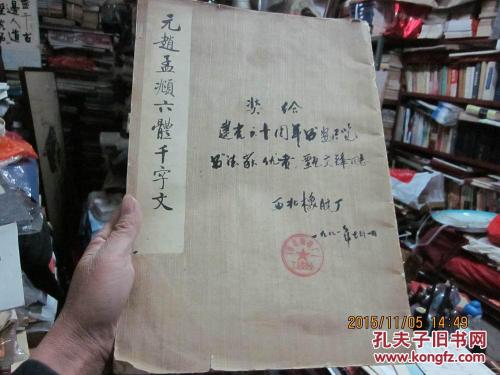 元趙孟頫六體千字文
奖给
建党六十周年书画展览
西北橡胶厂
一九八一年七月一日
2015/11/05 14:49
孔夫子旧书网
www.kongfz.com